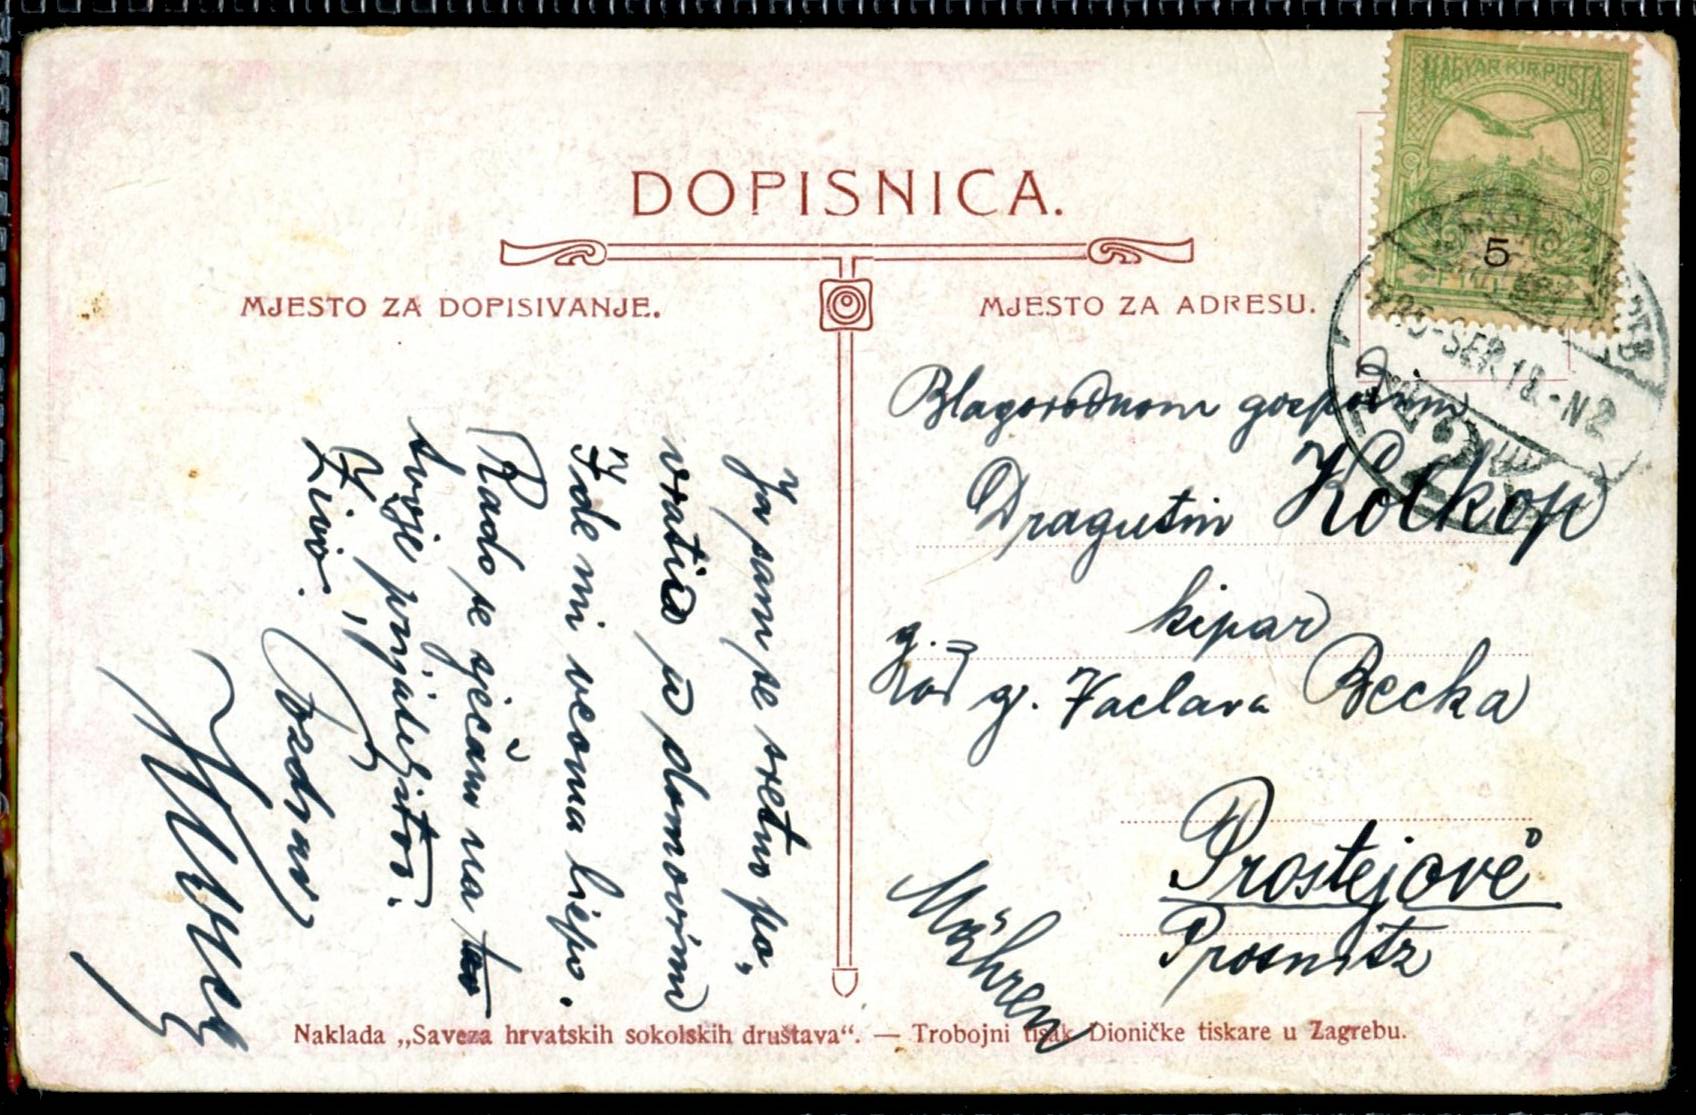 MAGYAR KIR. POSTA
5
DOPISNICA.
MJESTO ZA DOPISIVANJE.
MJESTO ZA ADRESU.
905-SEP.18.-N2
Ja sam se sretno po,
vratio u domovinu
Ide mi veoma liepo.
Rado se sječam na
tvoje prijateljstvo.
Živio!
Pozdrav
Blagorodnom gospodinu
Dragutin
kipar
g.
kod g. Vaclava Becka
Prostejově
Prosnitz
Mähren
Naklada „Saveza hrvatskih sokolskih društava“. — Trobojni tisak Dioničke tiskare u Zagrebu.